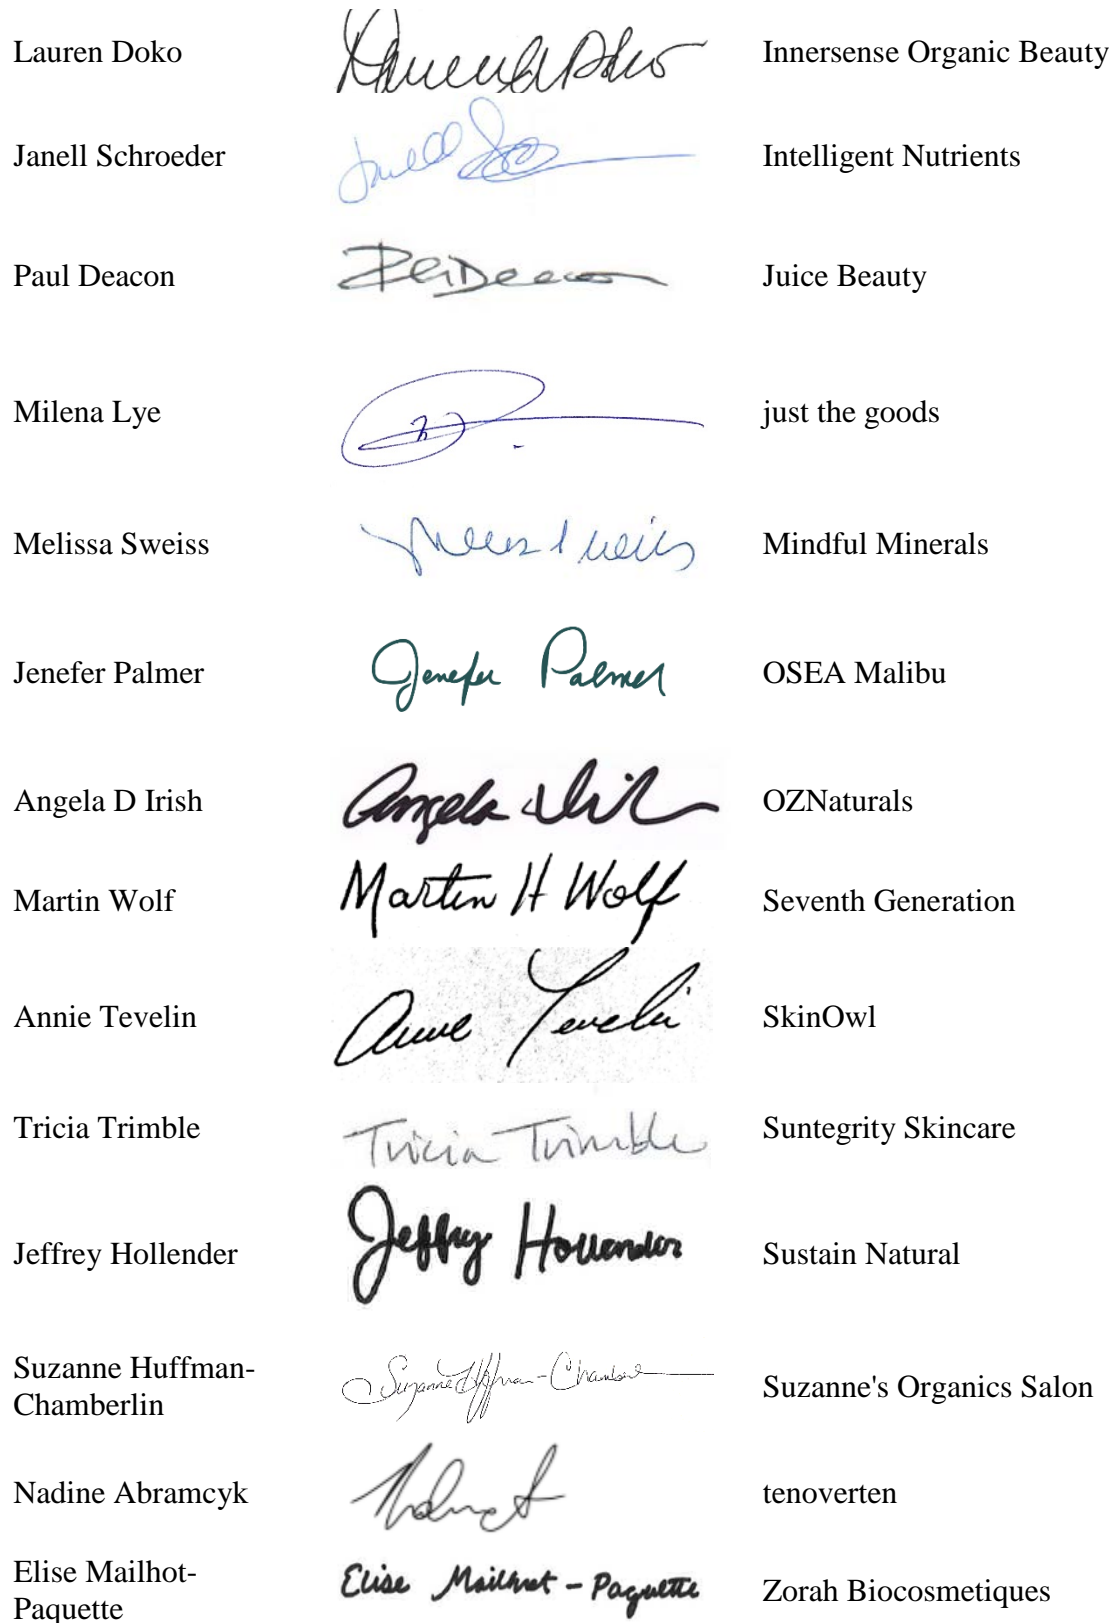 Lauren Doko Innersense Organic Beauty
Janell Schroeder Janell Intelligent Nutrients
Paul Deacon Deacon Juice Beauty
Milena Lye just the goods
Melissa Sweiss Mindful Minerals
Jenefer Palmer Jenefer Palmer OSEA Malibu
Angela D Irish Angela OZNaturals
Martin Wolf Martin H Wolf Seventh Generation
Annie Tevelin SkinOwl
Tricia Trimble Tricia Trimble Suntegrity Skincare
Jeffrey Hollender Jeffrey Hollender Sustain Natural
Suzanne Huffman-
Chamberlin Suzanne Suzanne's Organics Salon
Nadine Abramcyk tenoverten
Elise Mailhot-
Paquette Elise Mailhot - Paquette Zorah Biocosmetiques